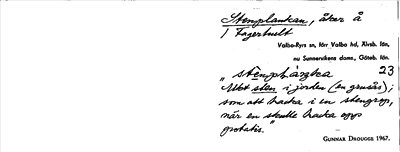 Stemplankan, åker å
1 Fagerhult
Valbo-Ryrs sn, förr Valbo hd, Älvsb. län,
nu Sunnervikens doms, Göteb. län.
23
"
Mbt sten i jorden (en grusås),
som att hacka i en stengrop,
när en skulle hacka upp
potatis."
GUNNAR DROUGGE 1967.